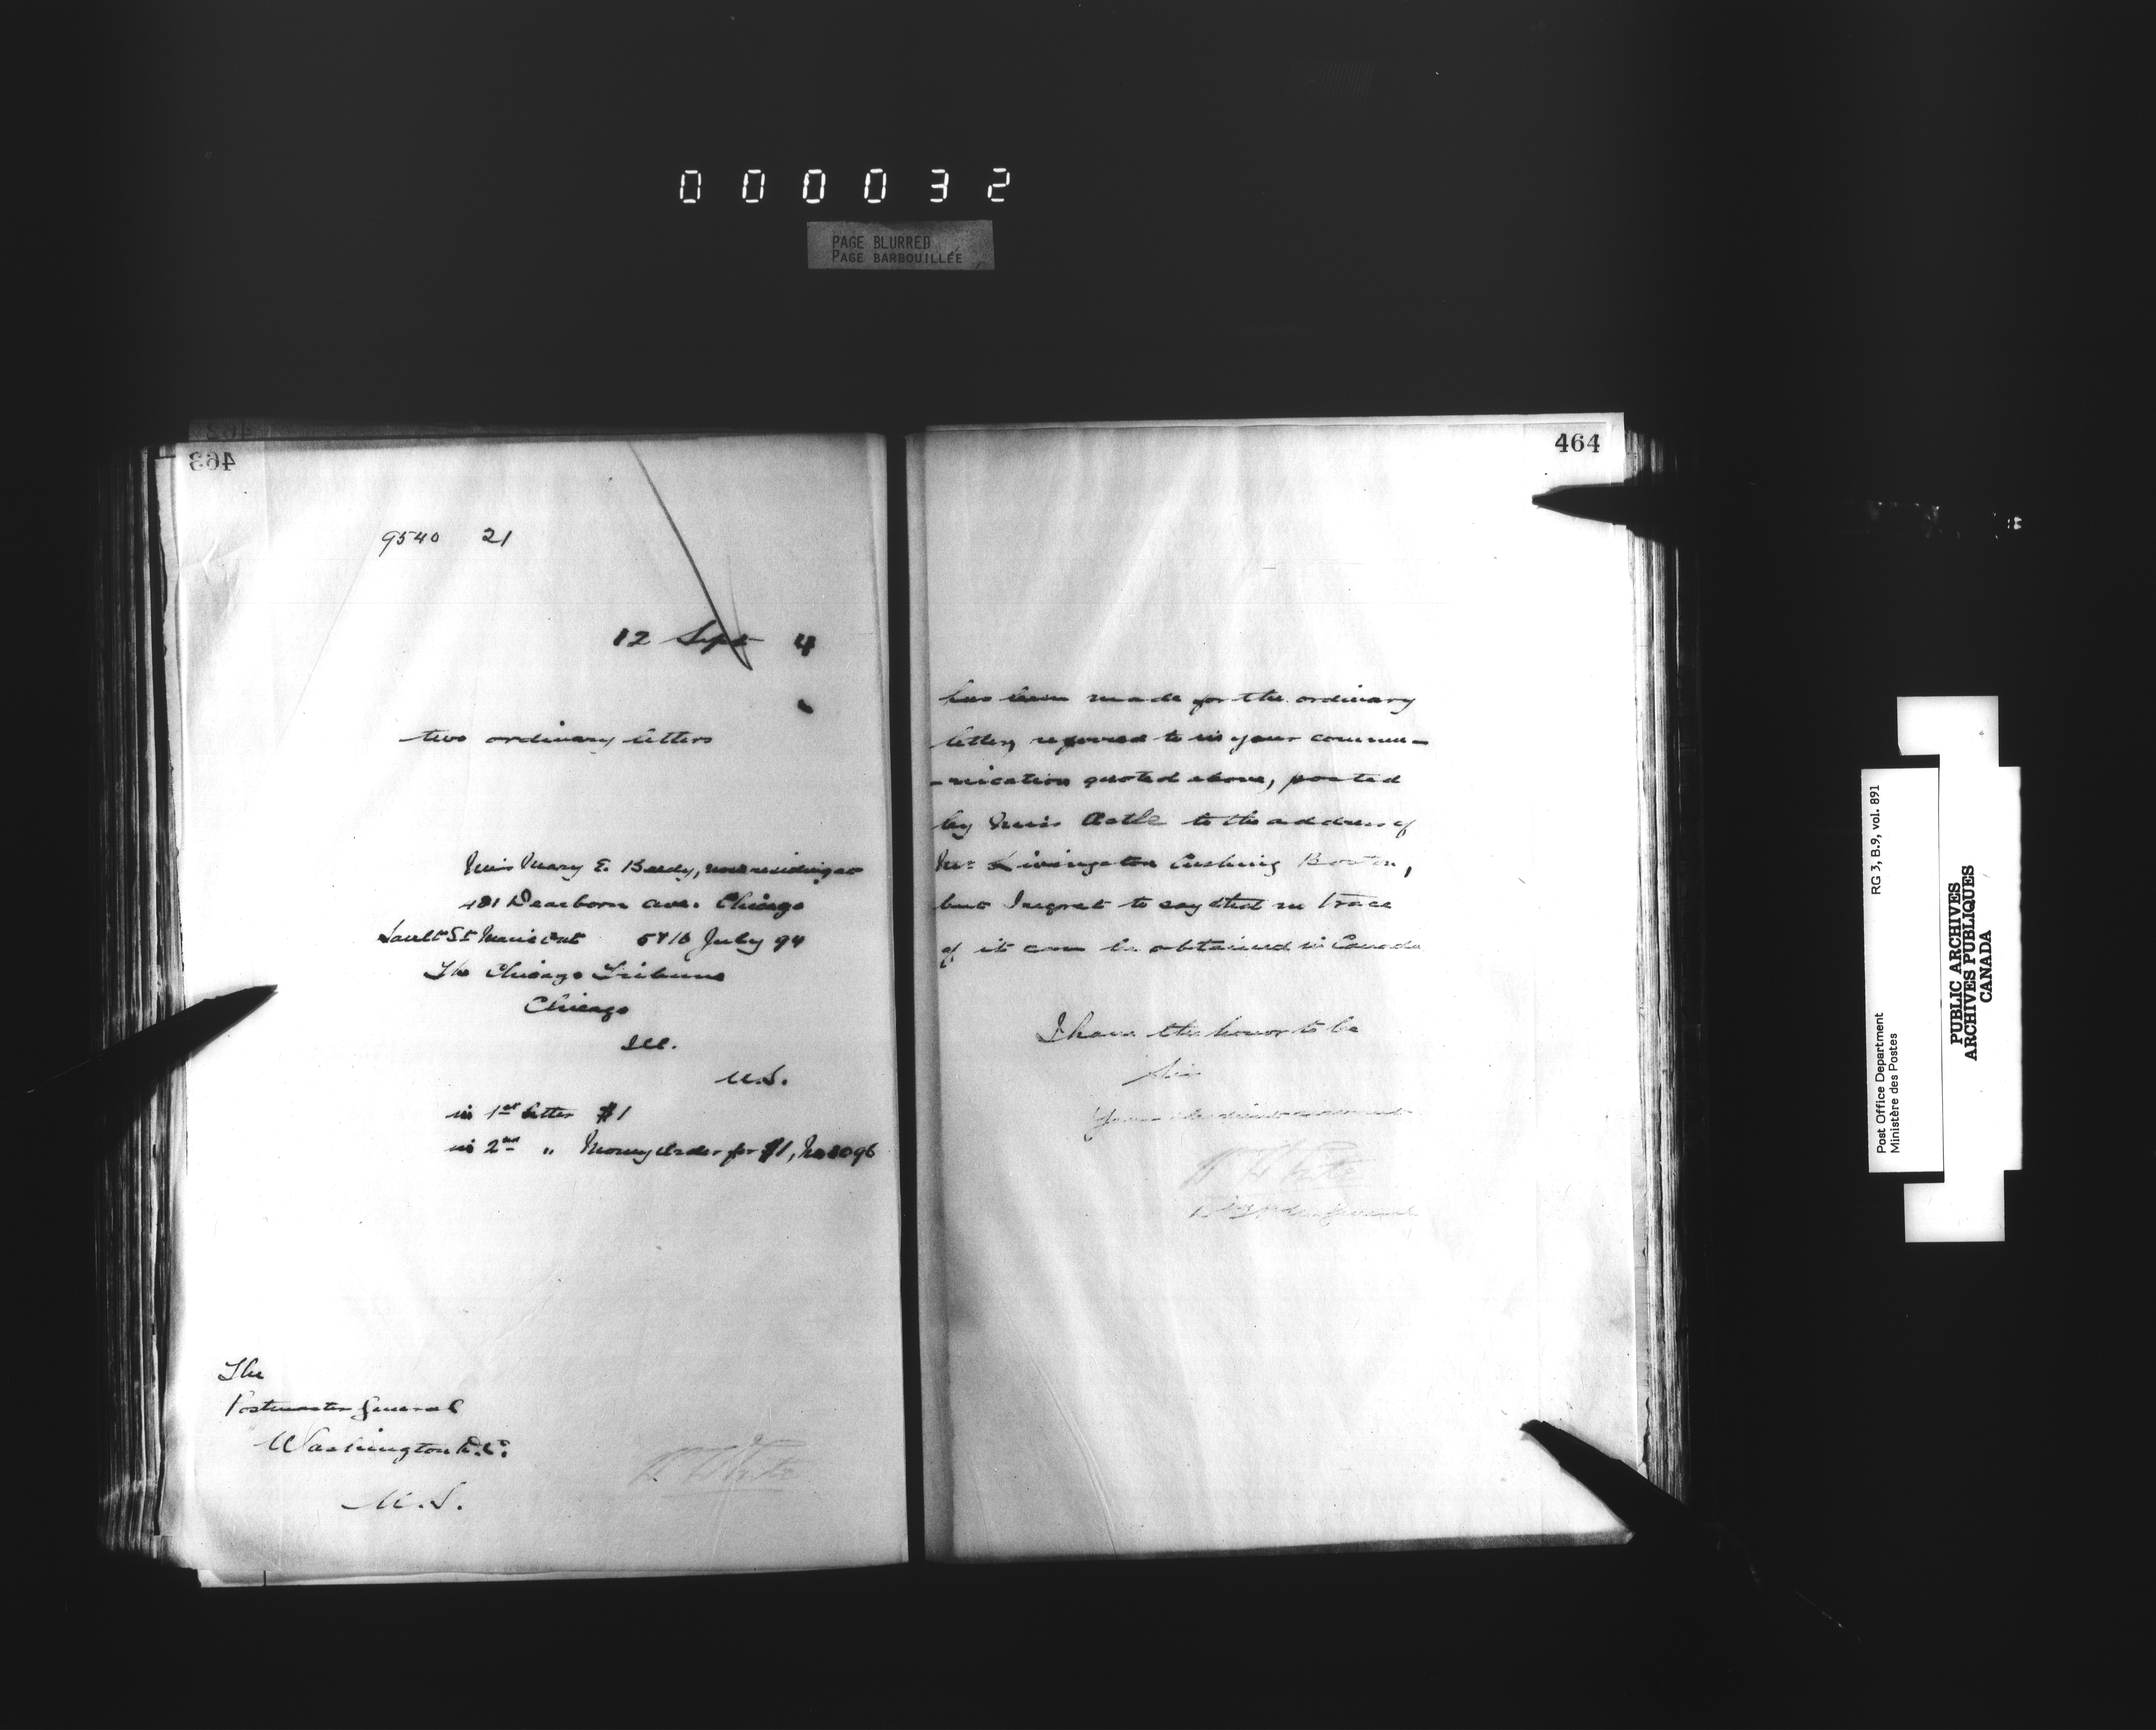 000032
PAGE BLURRED
PAGE BARBOUILLÉE
463
9540 21
12 Sept 4
two ordinary letters
Miss Mary E. Bardy, now residing at
481 Dearborn ave. Chicago
Sault St Marie Ont 5 & 16 July 94
The Chicago Tribune
Chicago
Ill.
U.S.
in 1st letter $1
in 2nd " Money Order for $1, No 8096
The
Postmaster General
Washington D.C.
U.S.
White
464
has been made for the ordinary
letter, referred to in your commu-
-nication quoted above, posted
by Miss Astle to the address of
Mr Livingston Cushing Boston,
but I regret to say that no trace
of it can be obtained in Canada
I have the honor to be
Sir
Your obedient servant
White
General
Post Office Department
Ministère des Postes
RG 3, B.9, vol. 891
PUBLIC ARCHIVES
ARCHIVES PUBLIQUES
CANADA